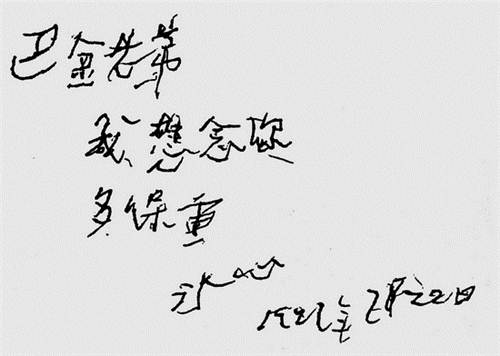 巴金老弟
我想念你
多保重
冰心
年2月22日